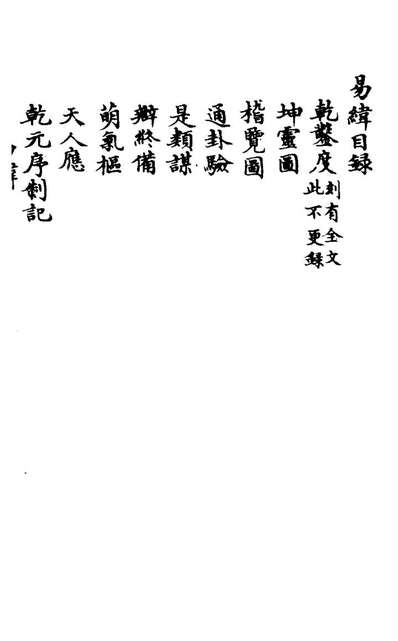 易緯目録
乾鑿度刻有全文此不更録
坤靈圖
稽覽圖
通卦驗
是類謀
辨終備
萌氣樞
天人應
乾元序制記